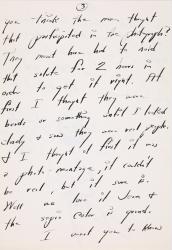 3
you think the men thought
that participated in the photograph?
They must have had to hold
that salute for 2 hours in
order to get it right. At
first I thought they were
birds or something until I looked
& saw they were real people.
& I thought at first it was
a photo-montage, it couldn't
be real, but it sure is.
Well we love it Jean &
the sepia color is grand.
I want you to know